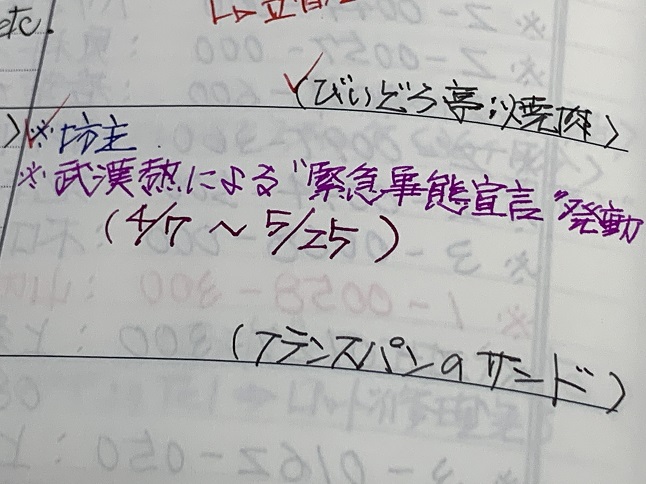 etc.
(びいどろ亭:焼肉)
※坊主
※武漢熱による"緊急事態宣言"発動
(4/7 ~ 5/25)
(フランスパンのサンド)